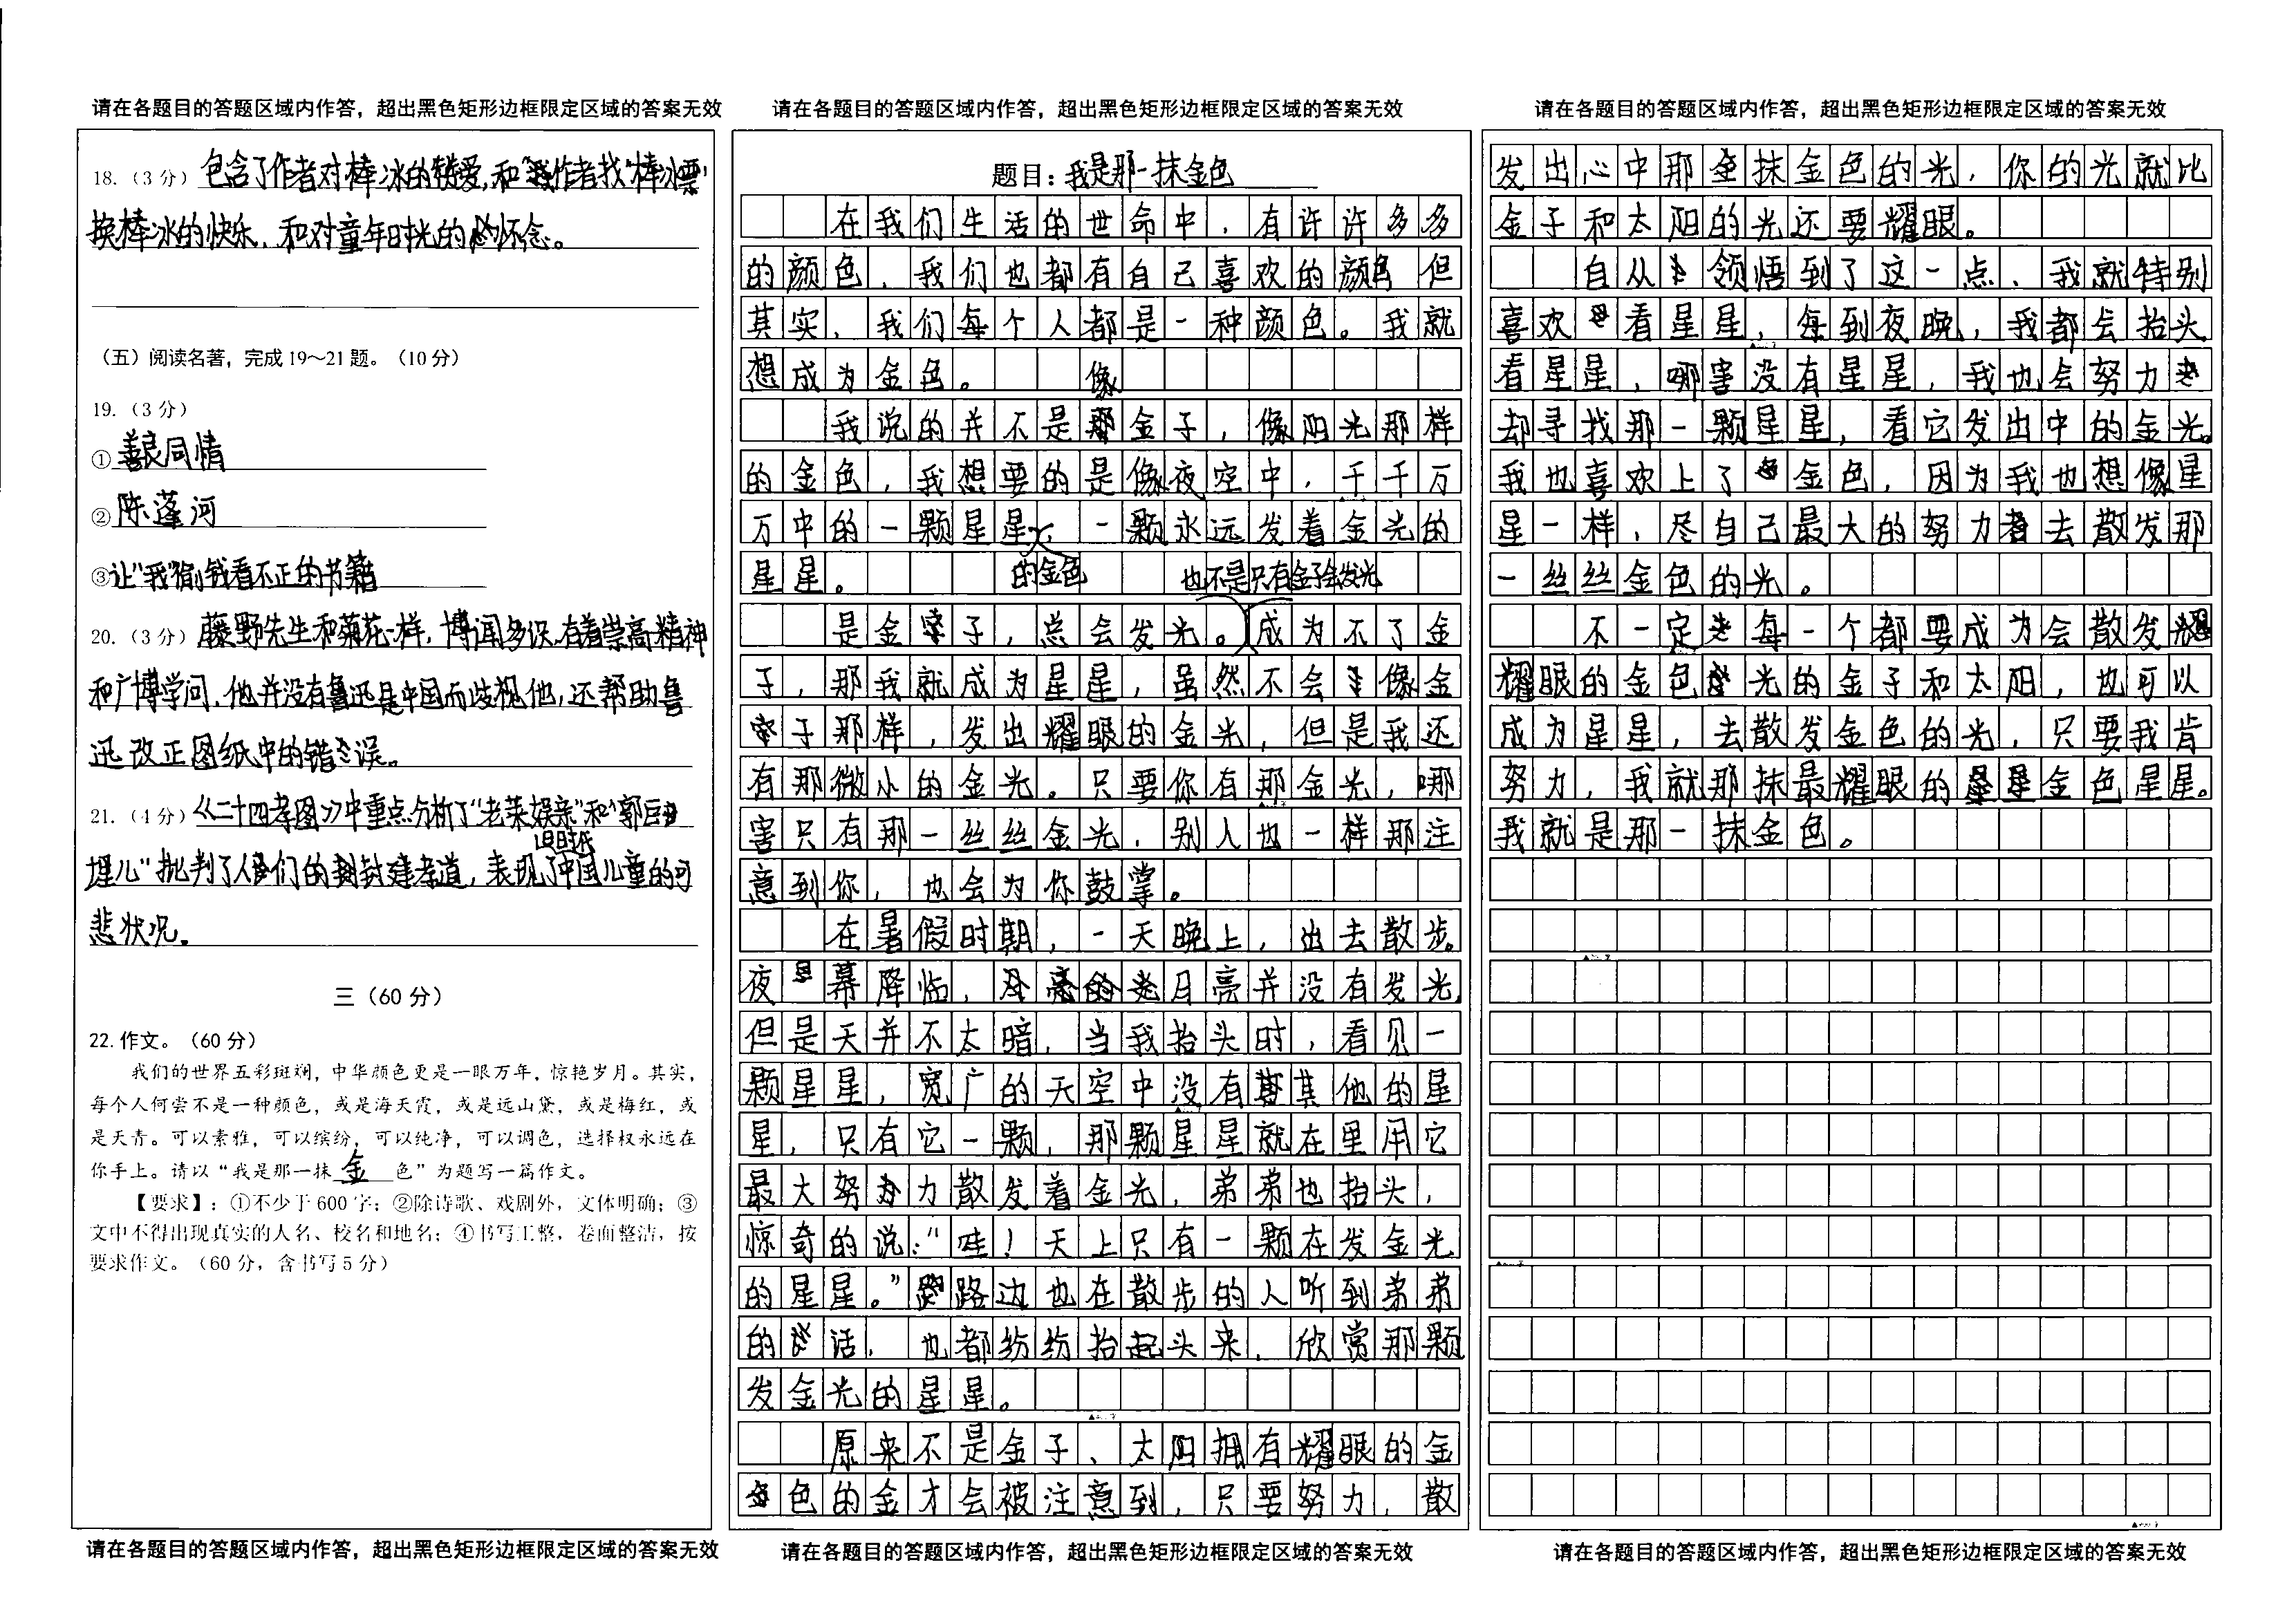 请在各题目的答题区域内作答，超出黑色矩形边框限定区域的答案无效
18.（3分）包含了作者对棒冰的喜爱,和作者找"棒冰票"
换棒冰的快乐、和对童年时光的怀念。
（五）阅读名著，完成19～21题。（10分）
19.（3分）
①善良同情
②陈蓬河
③让"我"偷钱看不正的书籍
20.（3分）藤野先生和菊花一样，博闻多识、有着崇高精神
和广博学问、他并没有鲁迅是中国而歧视他,还帮助鲁
迅改正图纸中的错误。
21.（4分）《二十四孝图》中重点分析了"老莱娱亲"和"郭巨
埋儿"批判了人们的封建孝道，表现了旧时代中国儿童的可
悲状况。
三（60分）
22.作文。（60分）
我们的世界五彩斑斓，中华颜色更是一眼万年，惊艳岁月。其实，
每个人何尝不是一种颜色，或是海天霞，或是远山黛，或是梅红，或
是天青。可以素雅，可以缤纷，可以纯净，可以调色，选择权永远在
你手上。请以“我是那一抹金色”为题写一篇作文。
【要求】：①不少于600字；②除诗歌、戏剧外，文体明确；③
文中不得出现真实的人名、校名和地名；④书写工整，卷面整洁，按
要求作文。（60分，含书写5分）
请在各题目的答题区域内作答，超出黑色矩形边框限定区域的答案无效
请在各题目的答题区域内作答，超出黑色矩形边框限定区域的答案无效
题目：我是那一抹金色
在我们生活的世命中，有许许多多
的颜色，我们也都有自己喜欢的颜色 但
其实，我们每个人都是一种颜色。我就
想成为金色。
我说的并不是像金子，像阳光那样
的金色，我想要的是像夜空中，千千万
万中的一颗星星的金色，一颗永远发着金光的
星星。
是金子，总会发光。也不是只有金子会发光 成为不了金
子，那我就成为星星，虽然不会像金
子那样，发出耀眼的金光，但是我还
有那微小的金光。只要你有那金光，哪
害只有那一丝丝金光，别人也一样那注
意到你，也会为你鼓掌。
在暑假时期，一天晚上，出去散步。
夜幕降临，月亮并没有发光，
但是天并不太暗，当我抬头时，看见一
颗星星，宽广的天空中没有其他的星
星，只有它一颗，那颗星星就在里用它
最大努力散发着金光，弟弟也抬头，
惊奇的说：“哇！天上只有一颗在发金光
的星星。”路边也在散步的人听到弟弟
的话，也都纷纷抬起头来，欣赏那颗
发金光的星星。
原来不是金子、太阳拥有耀眼的金
色的金才会被注意到，只要努力，散
请在各题目的答题区域内作答，超出黑色矩形边框限定区域的答案无效
请在各题目的答题区域内作答，超出黑色矩形边框限定区域的答案无效
发出心中那抹金色的光，你的光就比
金子和太阳的光还要耀眼。
自从领悟到了这一点，我就特别
喜欢看星星，每到夜晚，我都会抬头
看星星，哪害没有星星，我也会努力
却寻找那一颗星星，看它发出中的金光。
我也喜欢上了金色，因为我也想像星
星一样，尽自己最大的努力去散发那
一丝丝金色的光。
不一定每一个都要成为会散发
耀眼的金色光的金子和太阳，也可以
成为星星，去散发金色的光，只要我肯
努力，我就那抹最耀眼的金色星星。
我就是那一抹金色。
请在各题目的答题区域内作答，超出黑色矩形边框限定区域的答案无效